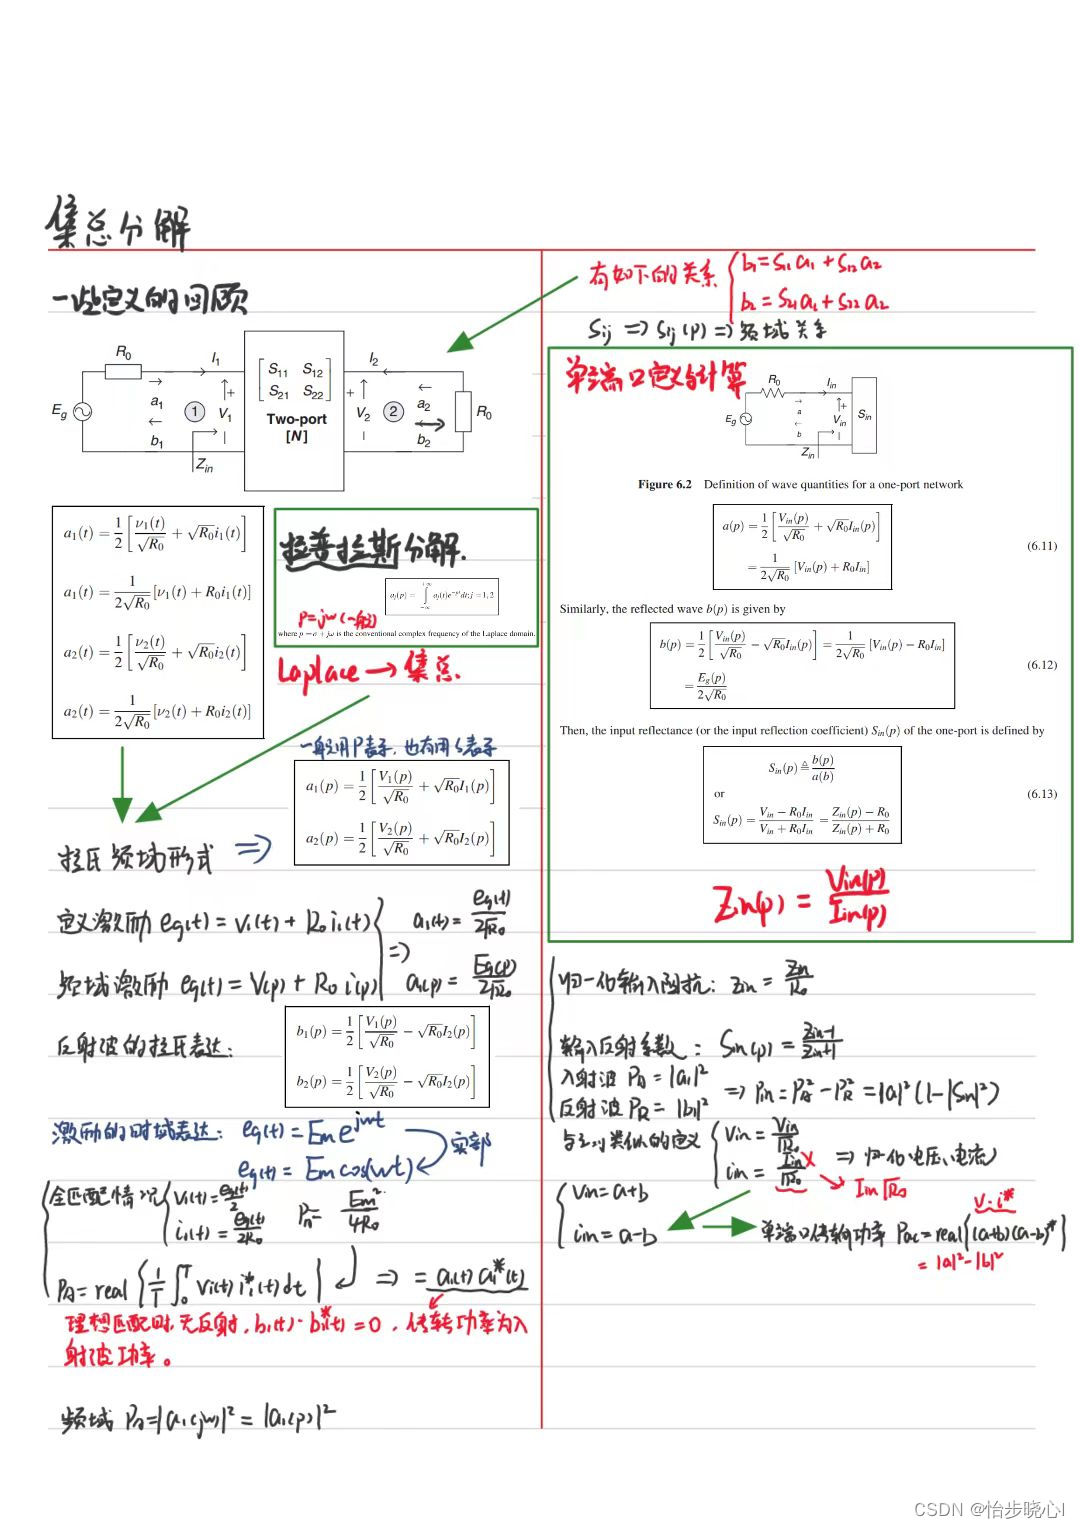 集总分解
一些定义的回顾
R₀ I₁ S₁₁ S₁₂ I₂
S₂₁ S₂₂
E_g a₁ 1 + V₁ + V₂ 2 a₂ R₀
b₁ Two-port b₂
Z_in [N]
a₁(t) = 1/2 [ν₁(t)/√R₀ + √R₀ i₁(t)]
a₁(t) = 1/(2√R₀) [ν₁(t) + R₀i₁(t)]
a₂(t) = 1/2 [ν₂(t)/√R₀ + √R₀ i₂(t)]
a₂(t) = 1/(2√R₀) [ν₂(t) + R₀i₂(t)]
拉普拉斯分解.
a_j(p) = ∫_{-∞}^{+∞} a_j(t)e^{-pt}dt; j = 1, 2
P=jw(一般)
where p = σ + jω is the conventional complex frequency of the Laplace domain.
Laplace → 集总.
一般用P表示, 也有用S表示
a₁(p) = 1/2 [V₁(p)/√R₀ + √R₀ I₁(p)]
a₂(p) = 1/2 [V₂(p)/√R₀ + √R₀ I₂(p)]
拉氏频域形式 ⇒
定义激励 eg(t) = V₁(t) + R₀ i₁(t)
⇒ a₁(t) = eg(t)/2√R₀
频域激励 eg(t) = V(p) + R₀ i(p)
a₁(p) = Eg(p)/2√R₀
反射波的拉氏表达:
b₁(p) = 1/2 [V₁(p)/√R₀ − √R₀ I₂(p)]
b₂(p) = 1/2 [V₂(p)/√R₀ − √R₀ I₂(p)]
激励的时域表达: eg(t) = Em e^{jwt}
eg(t) = Em cos(wt) 实部
全匹配情况 V₁(t) = eg(t)/2
i₁(t) = eg(t)/2R₀
P_A = Em²/4R₀
P_A = real { 1/T ∫₀ᵀ V₁(t) i₁*(t) dt } ⇒ = a₁(t) a₁*(t)
理想匹配时, 无反射, b₁(t)·b₁*(t) = 0, 传输功率为入
射波功率。
频域 P_A = |a₁(jw)|² = |a₁(p)|²
有如下的关系 b₁ = S₁₁ a₁ + S₁₂ a₂
b₂ = S₂₁ a₁ + S₂₂ a₂
Sij ⇒ Sij(p) ⇒ 频域关系
单端口定义与计算
R₀ I_in
E_g a b + V_in S_in
Z_in
Figure 6.2 Definition of wave quantities for a one-port network
a(p) = 1/2 [V_in(p)/√R₀ + √R₀ I_in(p)]
= 1/(2√R₀) [V_in(p) + R₀I_in]
(6.11)
Similarly, the reflected wave b(p) is given by
b(p) = 1/2 [V_in(p)/√R₀ − √R₀ I_in(p)] = 1/(2√R₀) [V_in(p) − R₀I_in]
(6.12)
= E_g(p)/(2√R₀)
Then, the input reflectance (or the input reflection coefficient) S_in(p) of the one-port is defined by
S_in(p) ≜ b(p)/a(b)
or
(6.13)
S_in(p) = (V_in − R₀I_in)/(V_in + R₀I_in) = (Z_in(p) − R₀)/(Z_in(p) + R₀)
Zin(p) = Vin(p)/Iin(p)
归一化输入阻抗: Zin = Zin/R₀
输入反射系数: Sin(p) = (Zin−1)/(Zin+1)
入射波 P_A = |a₁|²
⇒ Pin = P_A² − P_R² = |a|²(1−|Sin|²)
反射波 P_R = |b₁|²
与之对类似的定义 Vin = Vin/√R₀
in = Iin/√R₀ X ⇒ 归一化电压、电流
Iin√R₀
Vin = a+b
in = a−b
V·i*
单端口传输功率 Pac = real{(a+b)(a−b)*}
= |a|²−|b|²
CSDN @怡步晓心l